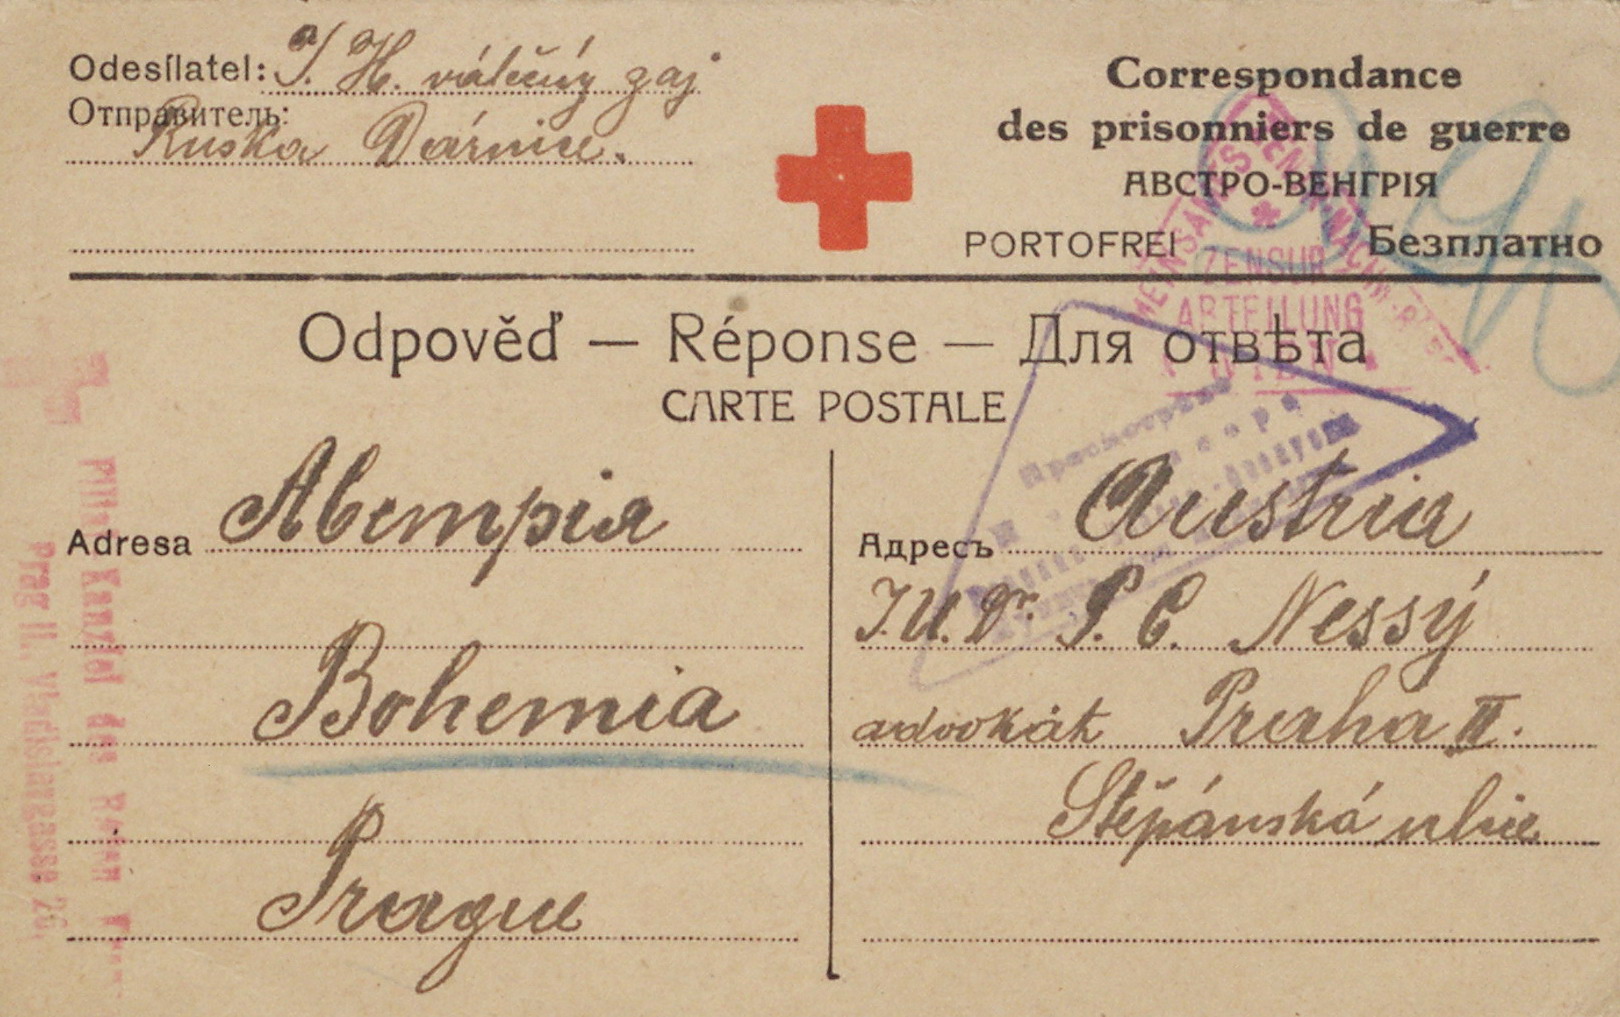 Odesílatel: J. H. válečný zaj
Отправитель:
Ruska Dárnice.
Correspondance
des prisonniers de guerre
АВСТРО-ВЕНГРІЯ
PORTOFREI Безплатно
ZENSUR
ABTEILUNG
WIEN
Odpověď — Réponse — Для отвѣта
CARTE POSTALE
Adresa Австрія
Bohemia
Prague
Адресъ Austria
J.U.Dr. P. C. Nessý
advokát Praha II.
Štěpánská ulice
Kanzlei des
Prag II., Vladislavgasse 26.